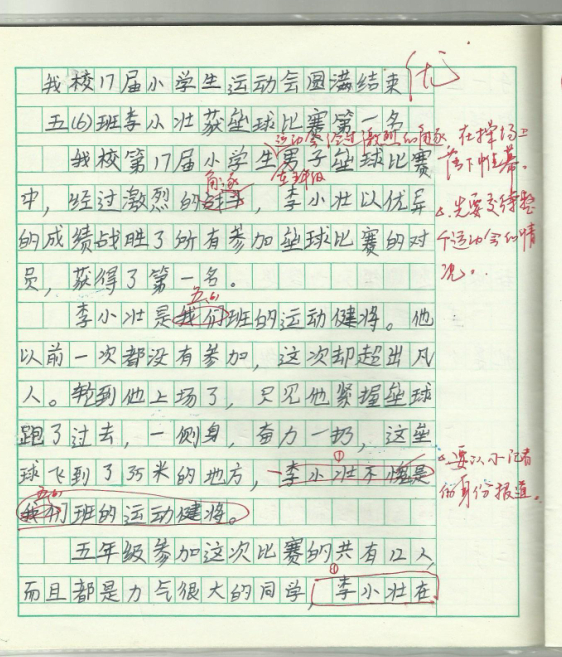 我校17届小学生运动会圆满结束
优
五(6)班李小壮获垒球比赛第一名
运动会经过激烈的角逐 在操场上
落下帷幕。
我校第17届小学生男子垒球比赛
在
角逐
中,经过激烈的战争,李小壮以优异
先要交待整
个运动会的情
况。
的成绩战胜了所有参加垒球比赛的对
员,获得了第一名。
五(6)
李小壮是我们班的运动健将。他
以前一次都没有参加,这次却超出凡
人。轮到他上场了,只见他紧握垒球
跑了过去,一侧身,奋力一扔,这垒
①
球飞到了35米的地方,李小壮不愧是
要以小记者
的身份报道。
五(6)
我们班的运动健将。
五年级参加这次比赛的共有12人,
而且都是力气很大的同学,李小壮在